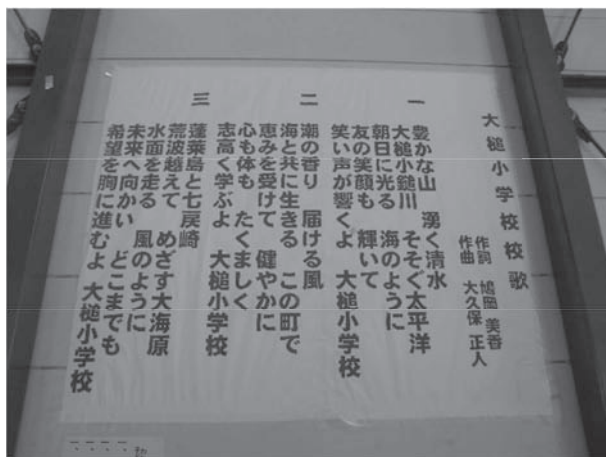 大槌小学校校歌
作詞 鳩岡 美香
作曲 大久保 正人
一
豊かな山 湧く清水
大槌小鎚川 そそぐ太平洋
朝日に光る 海のように
友の笑顔も 輝いて
笑い声が響くよ 大槌小学校
二
潮の香り 届ける風
海と共に生きる この町で
恵みを受けて 健やかに
心も体も たくましく
志高く学ぶよ 大槌小学校
三
蓬莱島と七戻崎
荒波越えて めざす大海原
水面を走る 風のように
未来へ向かい どこまでも
希望を胸に進むよ 大槌小学校